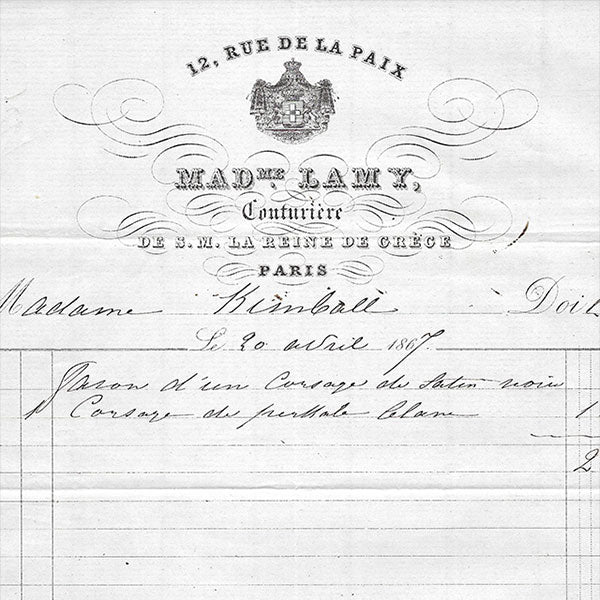 12, RUE DE LA PAIX
MADME. LAMY,
Couturière
DE S. M. LA REINE DE GRÈCE
PARIS
Madame Kimball Doit
Le 20 avril 1867.
façon d'un Corsage de Satin noir
1 Corsage de perkale blanc 1
2